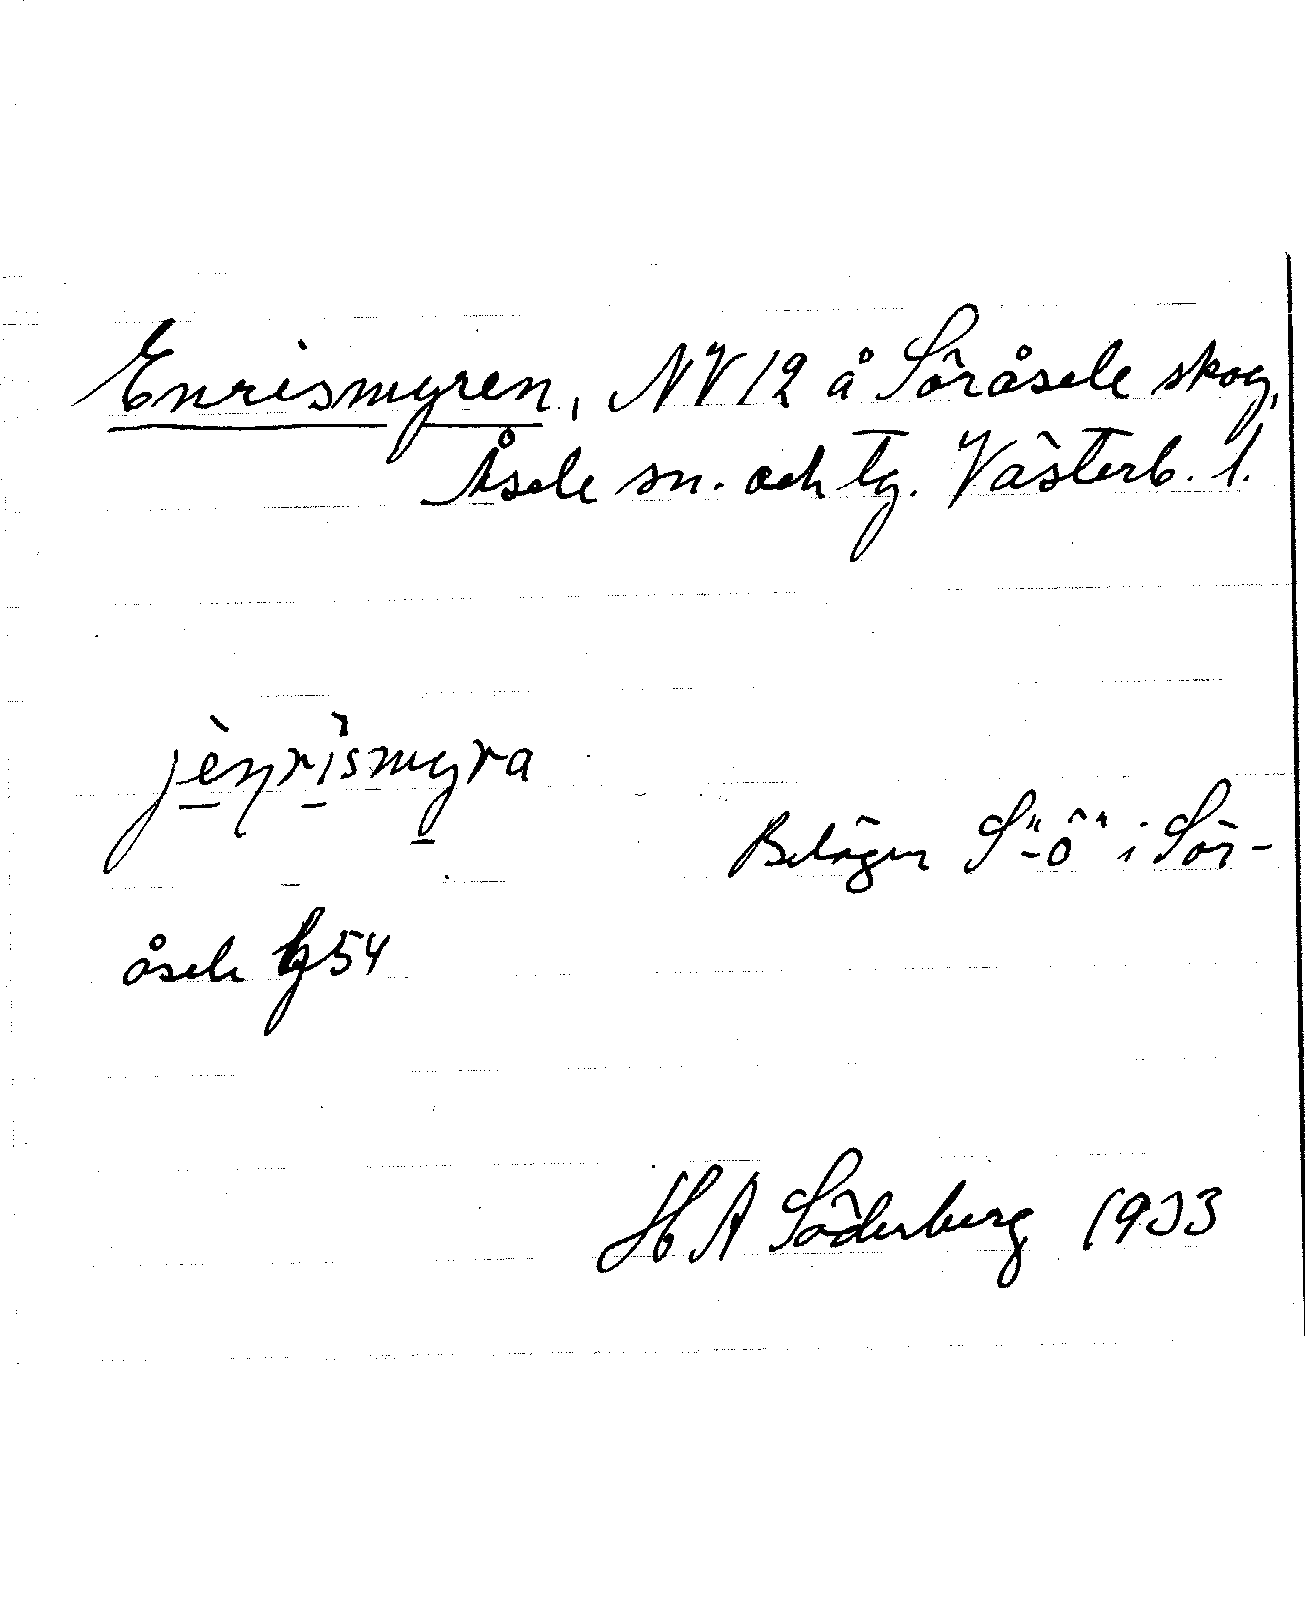 Enrismyren, NV 12 å Söråsele skog,
Åsele sn. och tg. Västerb. l.
jènrìsmyra
Belägen S"-ö" i Sör-
åsele 54
H A Söderberg 1933